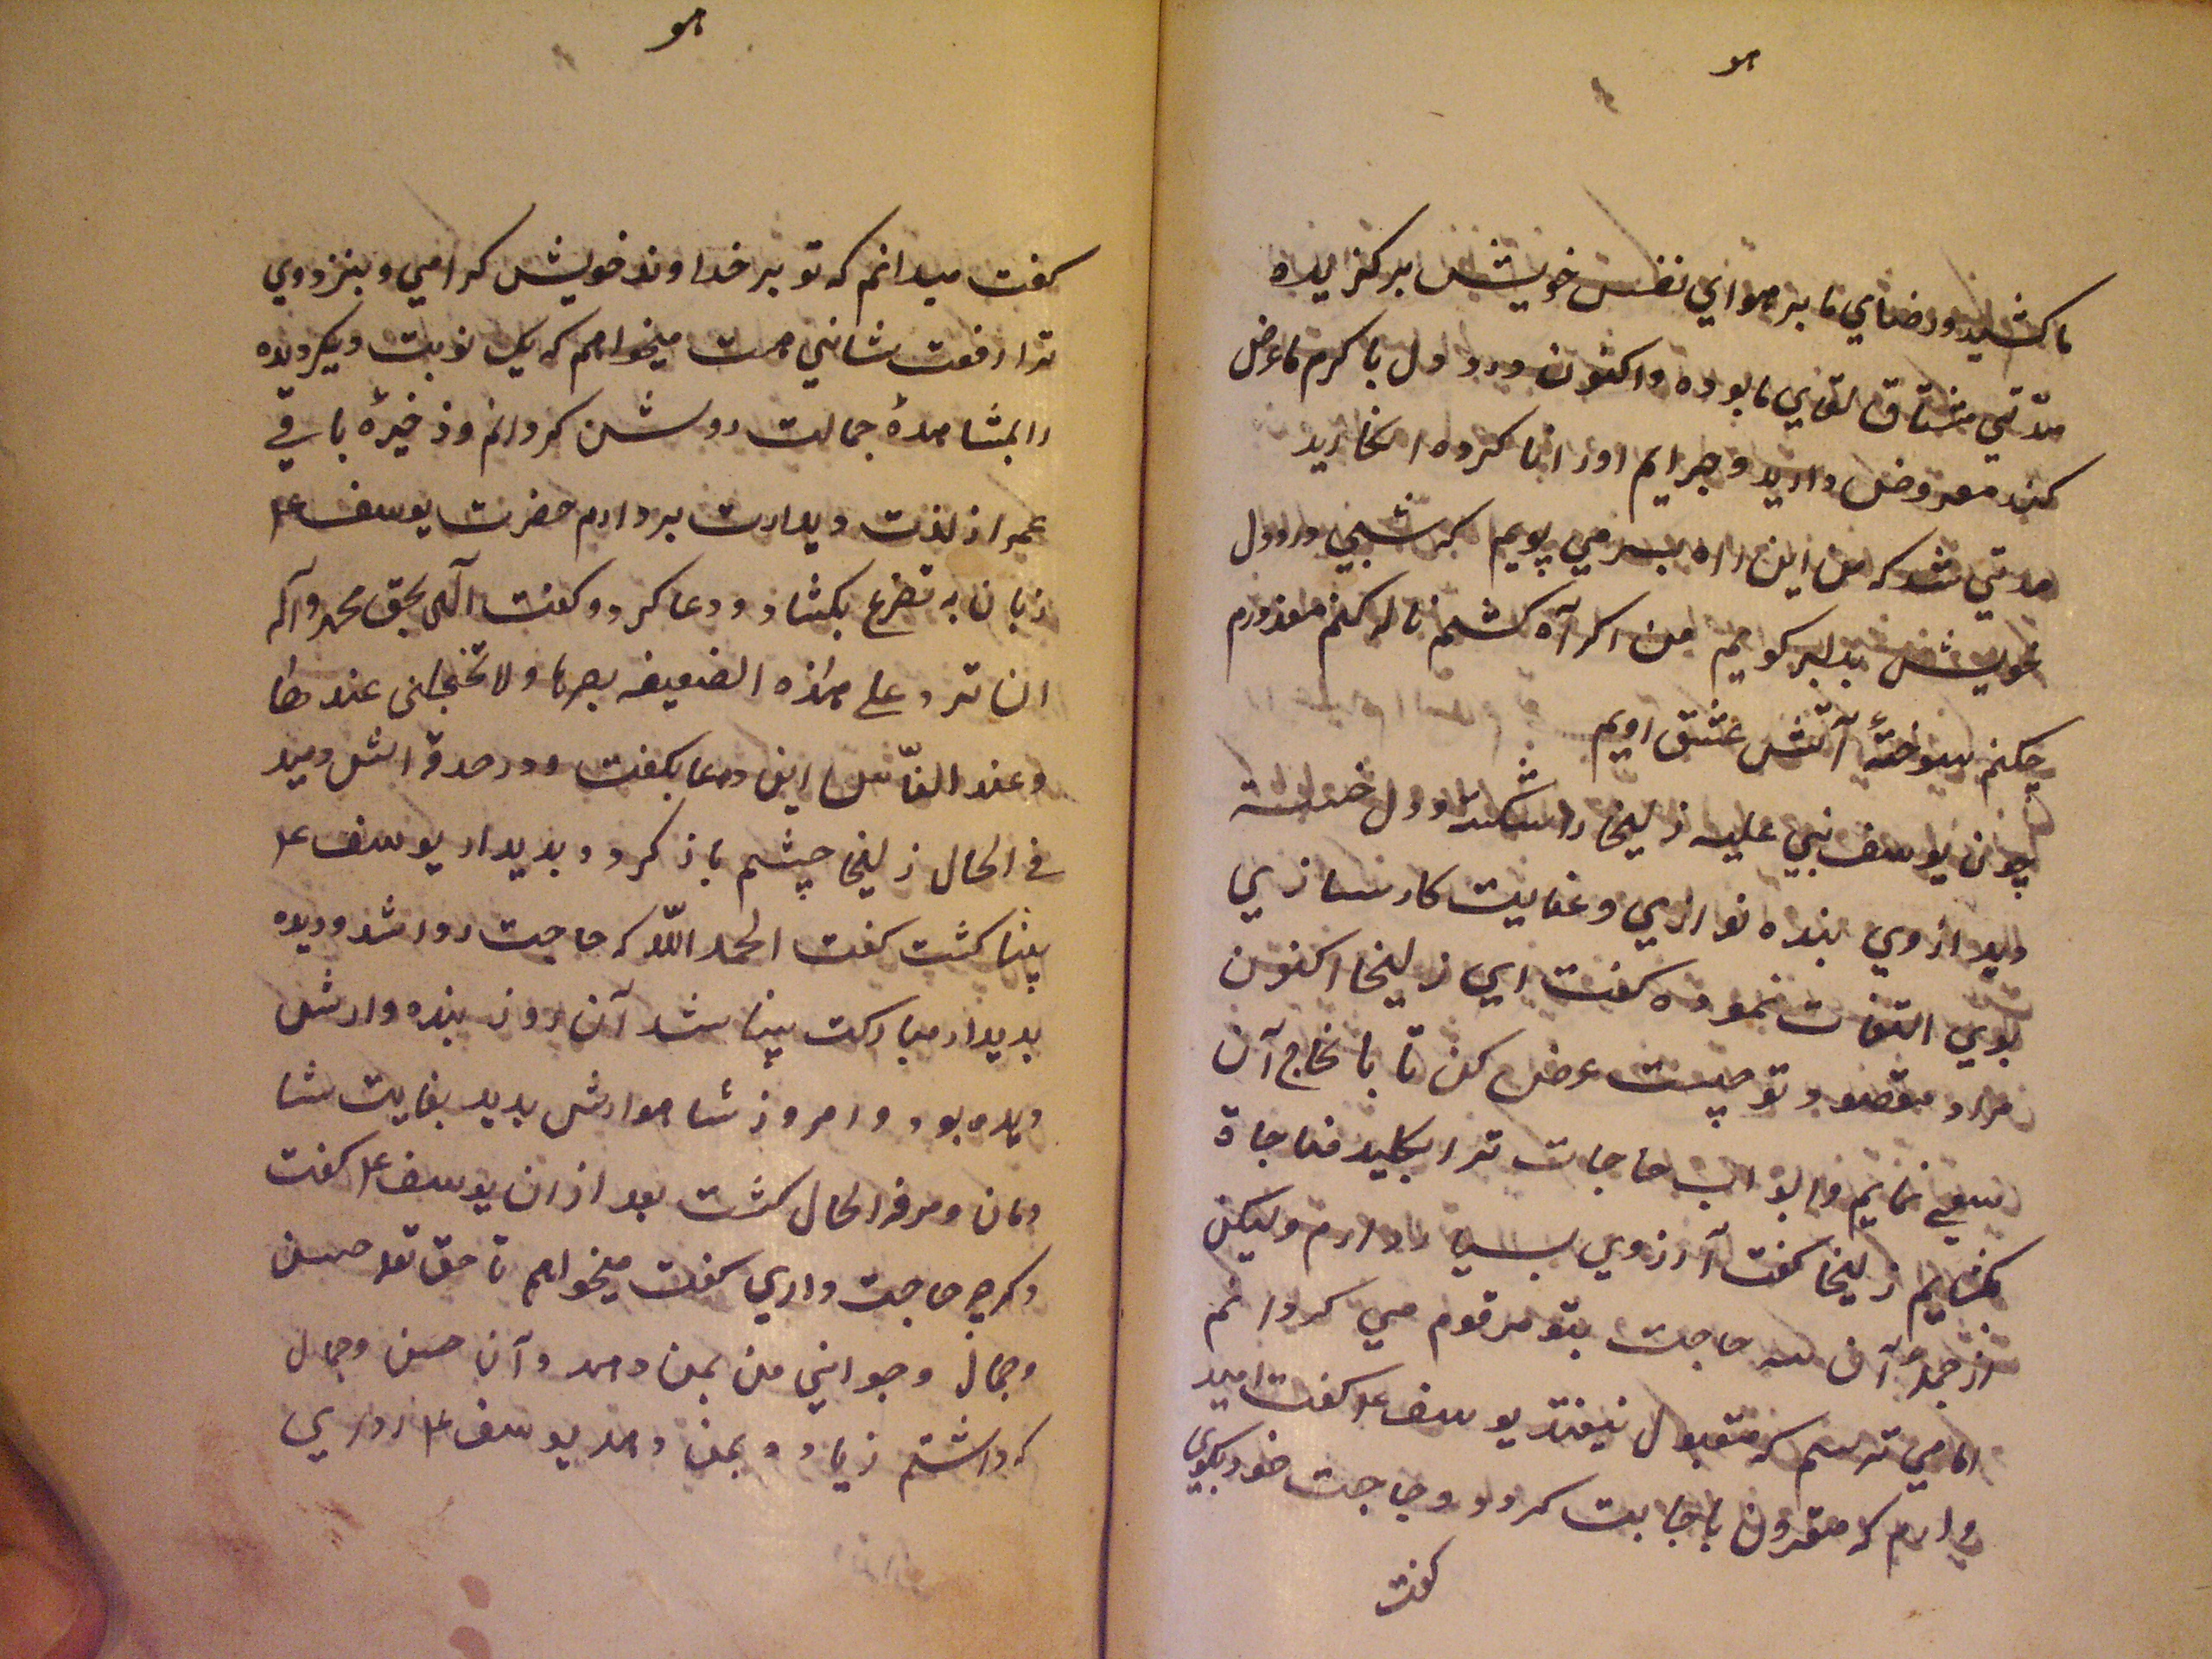 هو
ما کشیده و رضای ما بر هوای نفس خویش برکزیده
مدّتی مشتاق لقای ما بوده و اکنون درد دل با کرم ما عرض
کند معروض دارید و جرایم او را ناکرده انکارید
مدتی شد که من این راه بسر می پویم که شبی درد دل
خویش بدلبر کویم من اکر آه کشم ناله کنم معذورم
چکنم سوختهٔ آتش عشق اویم
چون یوسف نبی علیه زلیخا را شکسته و دل خسته
دید از وی بنده نوازی و غایت کارسازی
بوی التفات نموده کفت ای زلیخا اکنون
مراد مقصود تو چیست عرض کن تا بانجاح آن
سعی نمایم و ابواب حاجات ترا بکلید مناجاة
بکشایم زلیخا کفت آرزوی بسیار دارم ولیکن
از جملهٔ آن سه حاجت بتو مرقوم می کردانم
اما می ترسم که مقبول نیفتد یوسف ع کفت امید
دارم که مقرون باجابت کردد و حاجت خود بکوی
کفت
هو
کفت میدانم که تو بر خداوند خویش کرامی و بنزد وی
ترا رفعت شانی هست میخواهم که یک نوبت دیکر دیده
را بمشاهدهٔ جمالت روشن کردانم و ذخیرهٔ باقی
عمر از لذت دیدارت بردارم حضرت یوسف ع
زبان به تضرع بکشاد و دعا کرد و کفت الهی بحق محمد و آله
ان ترد علی هذه الضعیفه بصرها و لا تخجلنی عندها
و عند الناس این دعا بکفت و در حدقه اش دمید
فی الحال زلیخا چشم باز کرد و بدیدار یوسف ع
بینا کشت کفت الحمد الله که حاجت روا شد و دیده
بدیدار مبارکت بینا شد آن روز بنده وارش
دیده بود و امروز شاهوارش بدید بغایت شا
دمان و مرفه الحال کشت بعد از ان یوسف ع کفت
دکر چه حاجت داری کفت میخواهم تا حق تعه حسن
و جمال و جوانی من بمن دهد و آن حسن و جمال
که داشتم زیاده بمن دهد یوسف ع روی